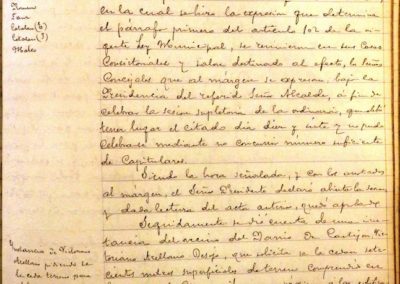 en la cual se hizo la expresión que determina
el párrafo primero del artículo 102 de la vi-
gente Ley Municipal, se reunieron en sus Casas
Consistoriales y salon destinado al efecto, los Señores
Concejales que al márgen se expresan, bajo la
Presidencia del referido Señor Alcalde, á fin de
celebrar la sesión supletoria de la ordinaria, que debió
tener lugar el citado día diez y siete y no pudo
celebrarse mediante no concurrir número suficiente
de Capitulares.
Siendo la hora señalada, y con los anotados
al márgen, el Señor Presidente declaró abierta la sesión
y dada lectura del acta anterior, quedó aprobada
Seguidamente se dió cuenta de una ins-
tancia del vecino del Barrio de
Arellano que solicita se le cedan sete-
cientos metros superficiales de terreno comprendido en
Catalan (b)
Catalan (f)
Instancia de
Arellano pidiendo se
le ceda terreno para